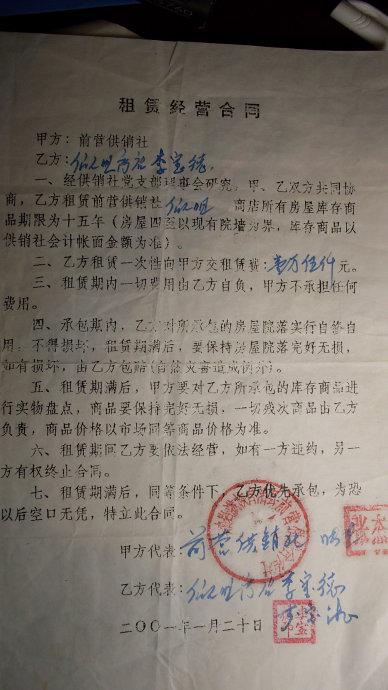 租赁经营合同
甲方：前营供销社
乙方：李宝
一、经供销社党支部理事会研究，甲、乙双方共同协
商，乙方租赁前营供销社 商店所有房屋库存商
品期限为十五年（房屋四至以现有院墙为界，库存商品以
供销社会计帐面金额为准）。
二、乙方租赁一次性向甲方交租赁费：壹万伍仟元。
三、租赁期内一切费用由乙方自负，甲方不承担任何
费用。
四、承包期内，乙方对所承包的房屋院落实行自管自
用，不得损坏，租赁期满后，要保持房屋院落完好无损，
如有损坏，由乙方包赔（自然灾害造成例外）。
五、租赁期满后，甲方要对乙方所承包的库存商品进
行实物盘点，商品要保持完好无损，一切残次商品由乙方
负责，商品价格以市场同等商品价格为准。
六、租赁期间乙方要依法经营，如有一方违约，另一
方有权终止合同。
七、租赁期满后，同等条件下，乙方优先承包，为恐
以后空口无凭，特立此合同。
甲方代表：前营供销社
乙方代表：李宝
二〇〇一年一月二十日